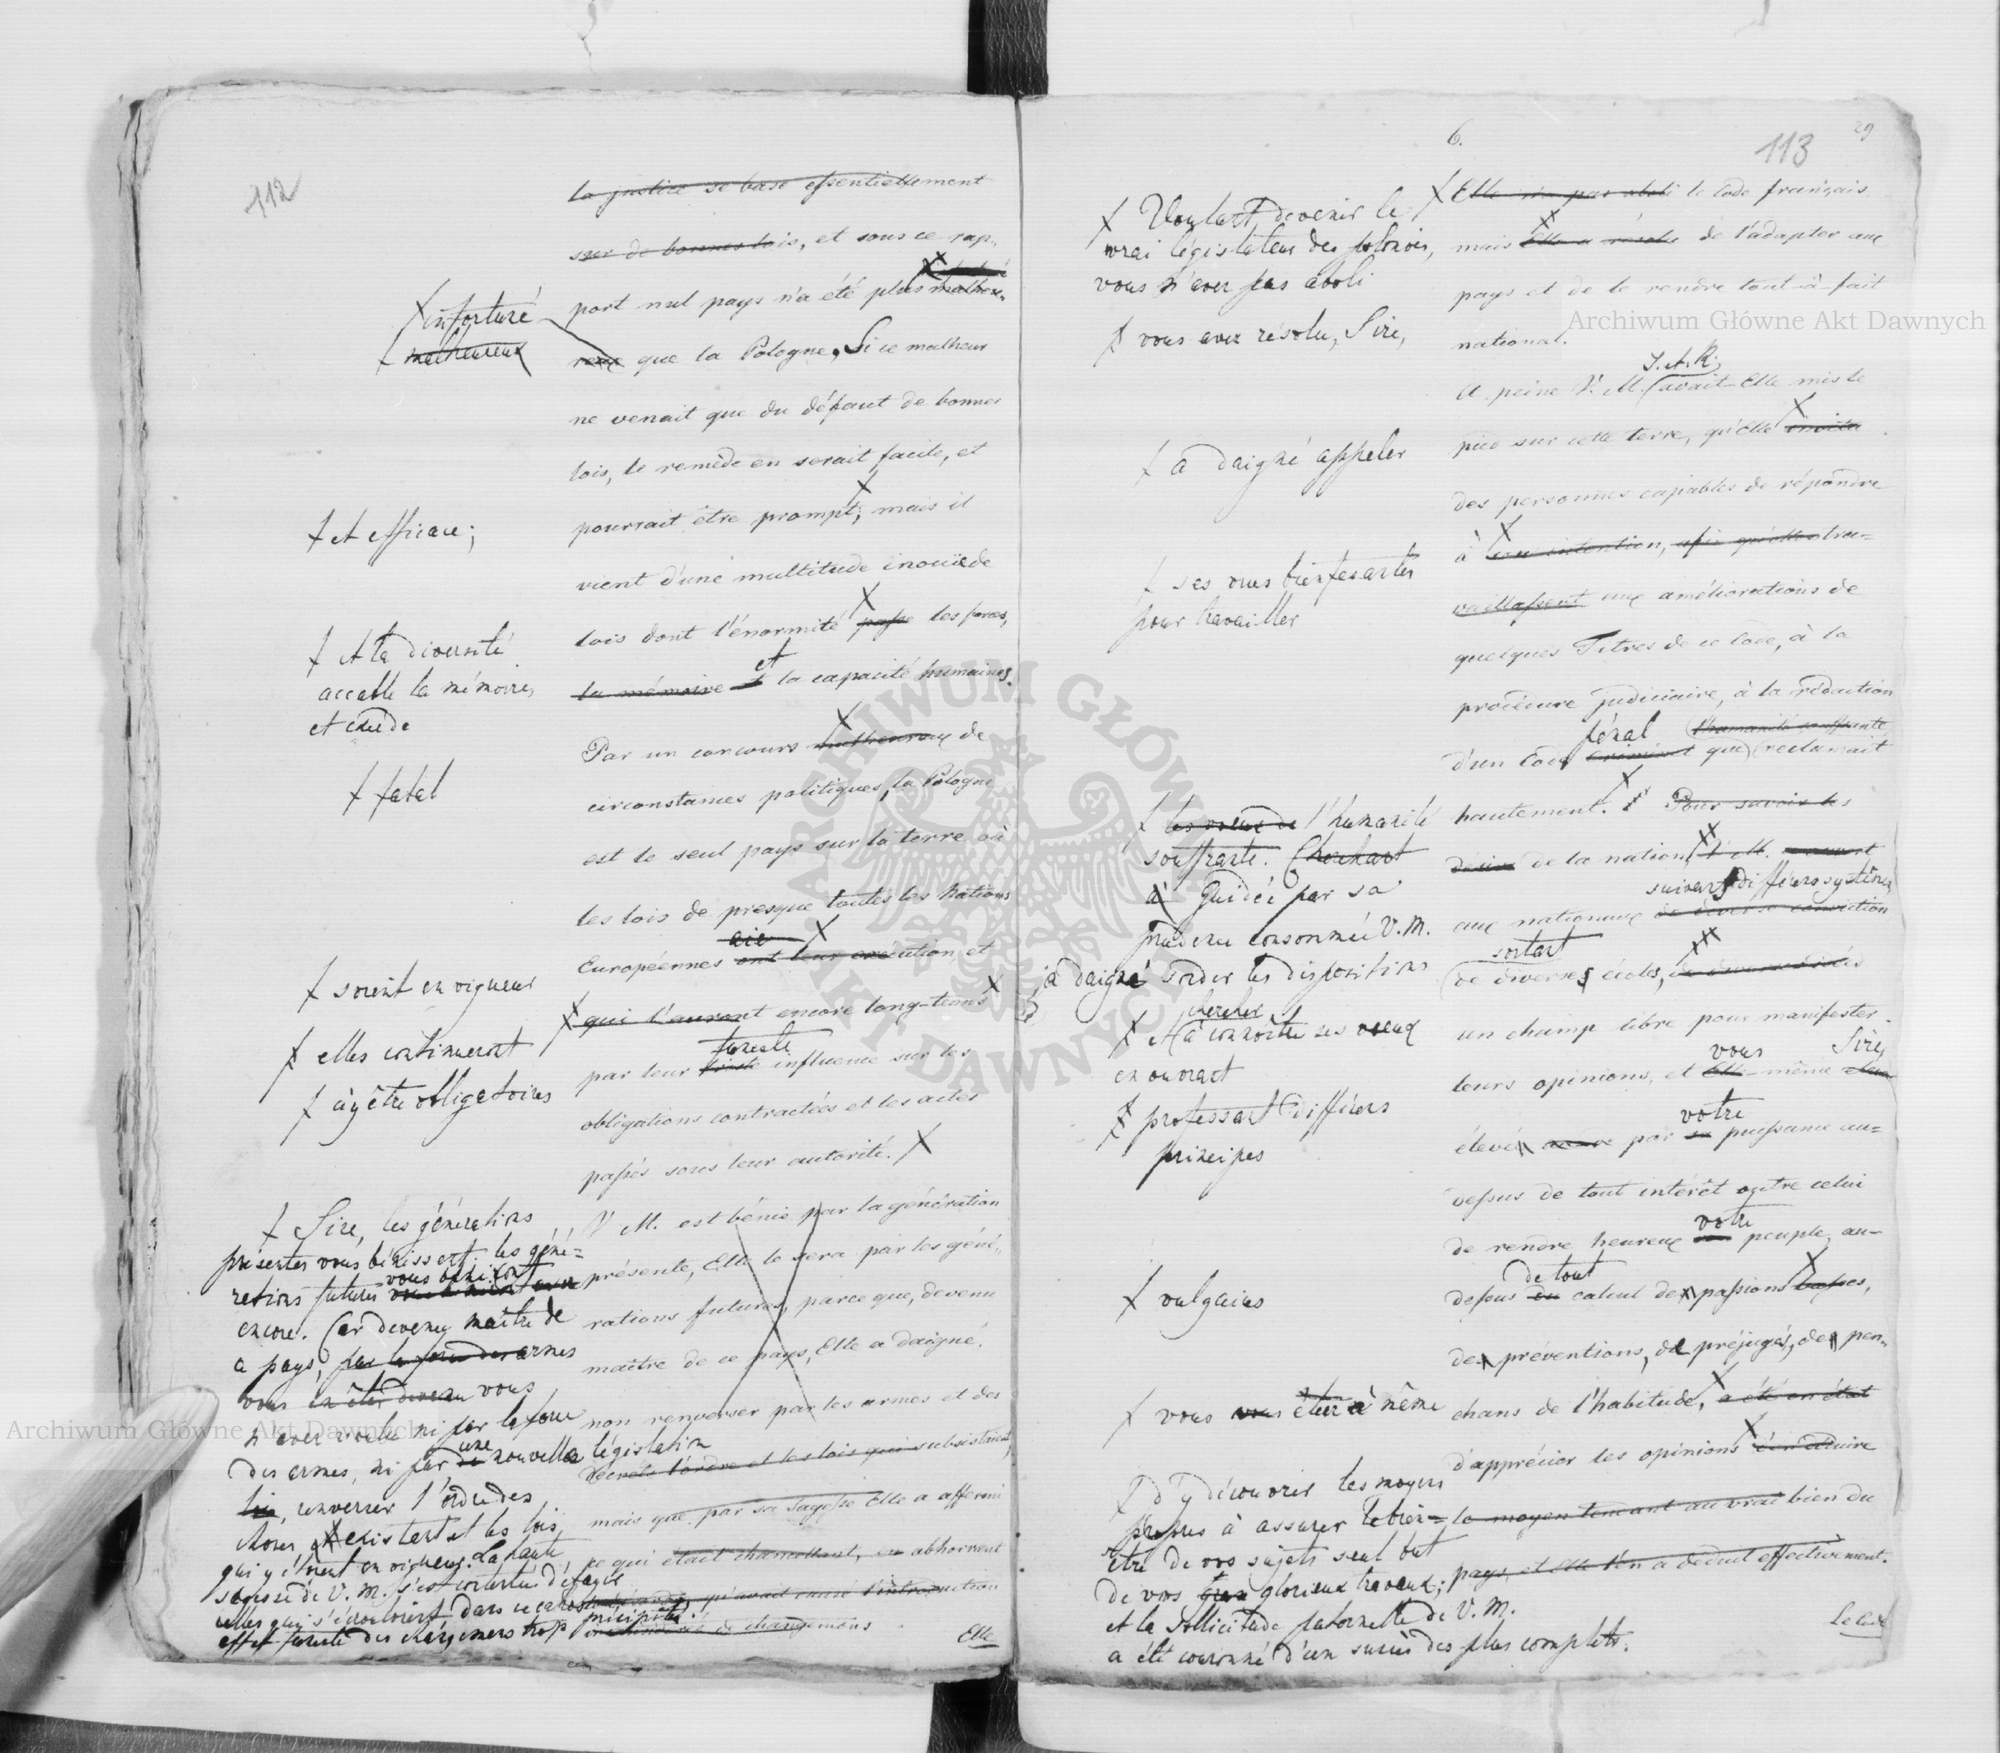 112
la justice se base essentiellement
sur de bonnes lois, et sous ce rap-
port nul pays n'a été plus malheu-
reux que la Pologne, Si ce malheur
ne venait que du défaut de bonnes
lois, le remède en serait facile, et
pourrait être prompt; mais il
vient d'une multitude inouïe de
lois dont l'énormité passe les forces,
la mémoire et la capacité humaines.
Par un concours malheureux de
circonstances politiques, la Pologne
est le seul pays sur la terre où
les lois de presque toutes les Nations
Européennes ont leur exécution et
qui l'auront encore long-tems
funeste
par leur triste influence sur les
obligations contractées et les actes
passés sous leur autorité.
V. M. est bénie par la génération
présente, Elle le sera par les géné-
rations futures, parce que, devenu
maître de ce pays, Elle a daigné,
non renverser par les armes et des
décrets l'ordre et les lois qui subsistaient,
mais que par sa sagesse Elle a affermi
ce qui était chancellant, en abhorrant
qu'avait causé l'introduction
de changemens
Elle
infortuné
malheureux
et efficace;
et la diversité
accable la mémoire,
et excède
fatal
soient en vigueur
elles continueront
à y être obligatoires
Sire, les générations
présentes vous bénissent, les géné=
rations futures vous béniront
encore. Car devenu maître de
ce pays, par la force des armes
vous en êtes devenu vous
n'avez voulu ni par la force
des armes, ni par une nouvelle législation
renverser l'ordre des
choses existant et les lois
qui y étoient en vigueur. La haute
sagesse de V. M. s'est contentée d'
celles qui s'écouloient dans ce cahos
effet funeste des changemens trop précipités.
6.
113
29
Elle n'a pas aboli le Code français
mais Elle a résolu de l'adapter au
pays et de le rendre tout-à-fait
national.
I. et R.
A peine V. M. avait-Elle mis le
pied sur cette terre, qu'Elle invita
des personnes capables de répondre
à son intention, afin qu'elles tra=
vaillassent aux améliorations de
quelques Titres de ce Code, à la
procédure judiciaire, à la rédaction
pénal l'humanité souffrante
d'un Code criminel que réclamait
hautement. Pour savoir les
désirs de la nation, V. M. ouvrit
suivant différens systêmes
aux nationaux de diverse conviction
sortant
de diverses écoles,
un champ libre pour manifester
vous Sire,
leurs opinions, et Elle-même
votre
élevé par sa puissance au=
dessus de tout intérêt outre celui
votre
de rendre heureux son peuple, au-
de tout
dessus du calcul de passions basses,
de préventions, de préjugés, de pen-
chans de l'habitude, a été en état
d'apprécier les opinions d'en déduire
le moyen tenant au vrai bien du
pays, et Elle l'en a déduit effectivement.
Le Code
Voulant devenir le
vrai législateur des polonois,
vous n'avez pas aboli
vous avez résolu, Sire,
a daigné appeler
ses vues bienfesantes
pour travailler
les voeux de l'humanité
souffrante. Cherchant
à Guidée par sa
prudence consommée V. M.
a daigné sonder les dispositions
chercher
et à connoitre ses voeux
en ouvrant
professant differens
principes
vulgaires
vous étiez à même
d'y découvrir les moyens
propres à assurer le bien=
être de vos sujets seul but
de vos glorieux travaux;
et la sollicitude paternelle de V. M.
a été couronné d'un succès des plus complets.
Archiwum Główne Akt Dawnych
Archiwum Główne Akt Dawnych
ARCHIWUM GŁÓWNE AKT DAWNYCH